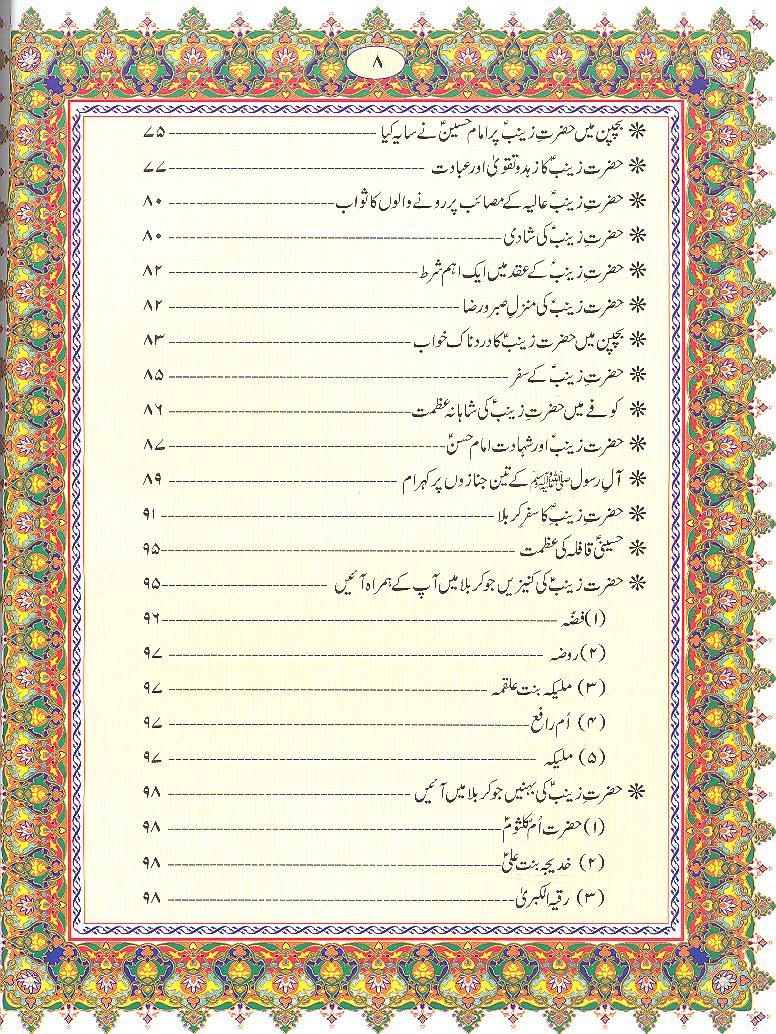 ۸
❊ بچپن میں حضرتِ زینبؑ پر امام حسینؑ نے سایہ کیا ---------- ۷۵
❊ حضرت زینبؑ کا زہد و تقویٰ اور عبادت ---------- ۷۷
❊ حضرتِ زینبؑ عالیہ کے مصائب پر رونے والوں کا ثواب ---------- ۸۰
❊ حضرتِ زینبؑ کی شادی ---------- ۸۰
❊ حضرتِ زینبؑ کے عقد میں ایک اہم شرط ---------- ۸۲
❊ حضرتِ زینبؑ کی منزلِ صبر و رضا ---------- ۸۲
❊ بچپن میں حضرت زینبؑ کا دردناک خواب ---------- ۸۳
❊ حضرتِ زینبؑ کے سفر ---------- ۸۵
❊ کوفے میں حضرتِ زینبؑ کی شاہانہ عظمت ---------- ۸۶
❊ حضرت زینبؑ اور شہادت امام حسنؑ ---------- ۸۷
❊ آلِ رسول ﷺ کے تین جنازوں پر کہرام ---------- ۸۹
❊ حضرتِ زینبؑ کا سفرِ کربلا ---------- ۹۱
❊ حسینیؑ قافلہ کی عظمت ---------- ۹۵
❊ حضرت زینبؑ کی کنیزیں جو کربلا میں آپ کے ہمراہ آئیں ---------- ۹۵
(۱) فضّہ ---------- ۹۶
(۲) روضہ ---------- ۹۷
(۳) ملیکہ بنت علقمہ ---------- ۹۷
(۴) اُم رافع ---------- ۹۷
(۵) ملیکہ ---------- ۹۷
❊ حضرتِ زینبؑ کی بہنیں جو کربلا میں آئیں ---------- ۹۸
(۱) حضرت اُم کلثومؑ ---------- ۹۸
(۲) خدیجہ بنت علیؑ ---------- ۹۸
(۳) رقیہ الکبریٰ ---------- ۹۸